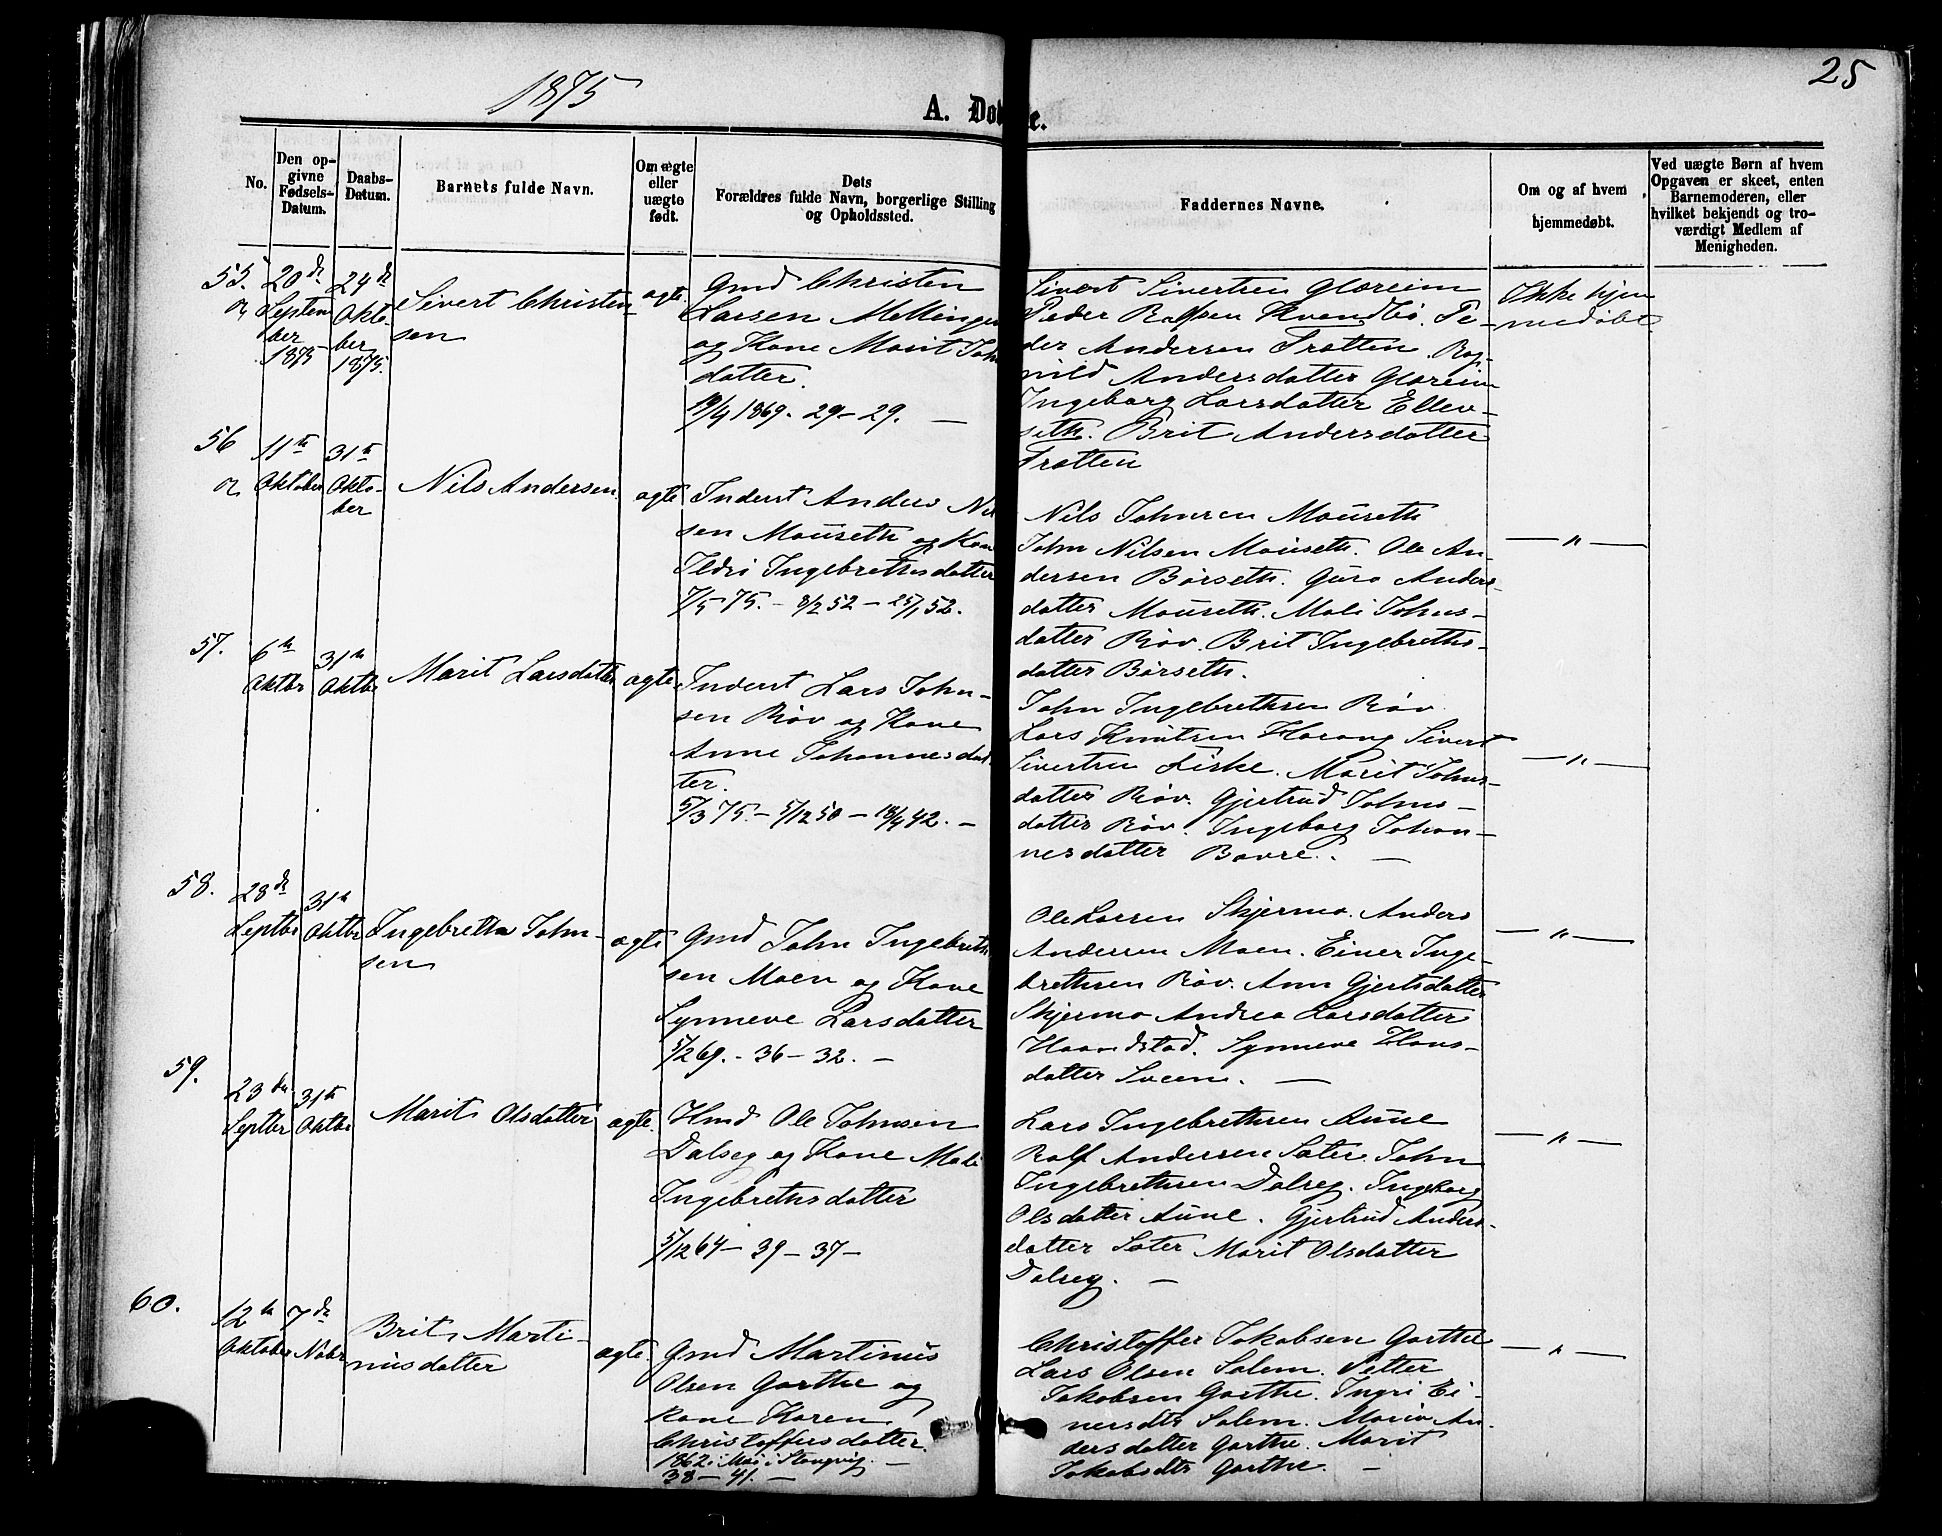 1875
25
A. Dø
e.
No.
Den op-
givne
Fødsels-
Datum.
Daabs-
Datum.
Barnets fulde Navn.
Om ægte
eller
uægte
født.
Dets
Forældres fulde Navn, borgerlige Stilling
og Opholdssted.
Faddernes Navne.
Om og af hvem
hjemmedøbt.
Ved uægte Børn af hvem
Opgaven er skeet, enten
Barnemoderen, eller
hvilket bekjendt og tro-
værdigt Medlem af
Menigheden.
55.
20de
Septem
ber
1875
24de
Okto-
ber
1875.
Sivert Christen-
sen
ægte.
Gmd Christen
Larsen Mellinge
og Kone Marit Joh
datter.
19/4 1869. 29 - 29. —
Sivert Sivertsen Glæreim
Peder Rolfsen Kvendbø. Pe-
der Andersen Trøtten. Rag-
nild Andersdatter Glæreim
Ingeborg Larsdatter Ellev-
seth. Brit Andersdatter
Trøtten
Ikke hjem
medøbt
56
11te
Oktober
31te
Okto-
ber
Nils Andersen
ægte
Inderst Anders Nil
sen Mouseth og Kon
Ildri Ingebrethsdatter
7/5 75. - 8/2 52 - 25/1 52.
Nils Johnsen Mouseth
John Nilsen Mouseth. Ole An-
dersen Børseth. Guro Anders-
datter Mouseth. Mali Johns-
datter Røv. Brit Ingebreths-
datter Børseth.
— " —
57.
6te
Oktbr
31te
Oktbr
Marit Larsdatter
ægte.
Inderst Lars John-
sen Røv og Kone
Anne Johannesdat
ter.
5/3 75. - 5/12 50 - 18/4 42. -
John Ingebrethsen Røv.
Lars Knutsen Harang Sivert
Sivertsen Fiske. Marit Johns-
datter Røv. Gjertrud Johns-
datter Røv. Ingeborg Johan-
nesdatter Bovre. —
— " —
58.
28de
Septbr
31te
Oktbr
Ingebreth John-
sen
ægte
Gmd John Ingebreth
sen Moen og Kone
Synneve Larsdatter
5/12 69. - 36 - 32. -
Ole Larsen Skjermo. Anders
Andersen Moen. Einer Inge-
brethsen Røv. Ann Gjertsdatter
Skjermo Andrea Larsdatter
Haandstad. Synneve Hans-
datter Sveen. —
— " —
59.
23de
Septbr
31te
Oktbr
Marit Olsdatter
ægte.
Hmd Ole Johnsen
Dalseg og Kone Mali
Ingebrethsdatter
5/12 64 - 39 - 37 -
Lars Ingebrethsen Aune
Rolf Andersen Sæter. John
Ingebrethsen Dalseg. Ingeborg
Olsdatter Aune. Gjertrud Anders-
datter Sæter Marit Olsdatter
Dalseg. —
— " —
60.
12te
Oktober
7de
Nobr
Brit Marti-
nusdatter
ægte.
Gmd Martinus
Olsen Garthe og
kone Karen
Christoffersdatter.
1862 i Mai i Stangvig. —
38 - 41. -
Christoffer Jakobsen Garthe
Lars Olsen Solem. Petter
Jakobsen Garthe. Ingri Ei-
nersdtr Solem. Maria An-
dersdatter Garthe. Marit
Jakobsdtr Garthe. —
— " —